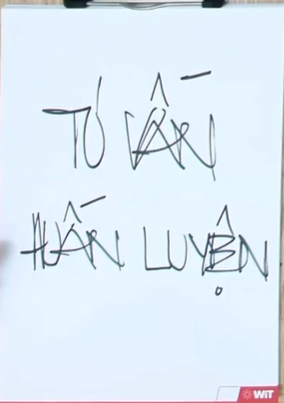 TƯ VẤN
HUẤN LUYỆN
WiT